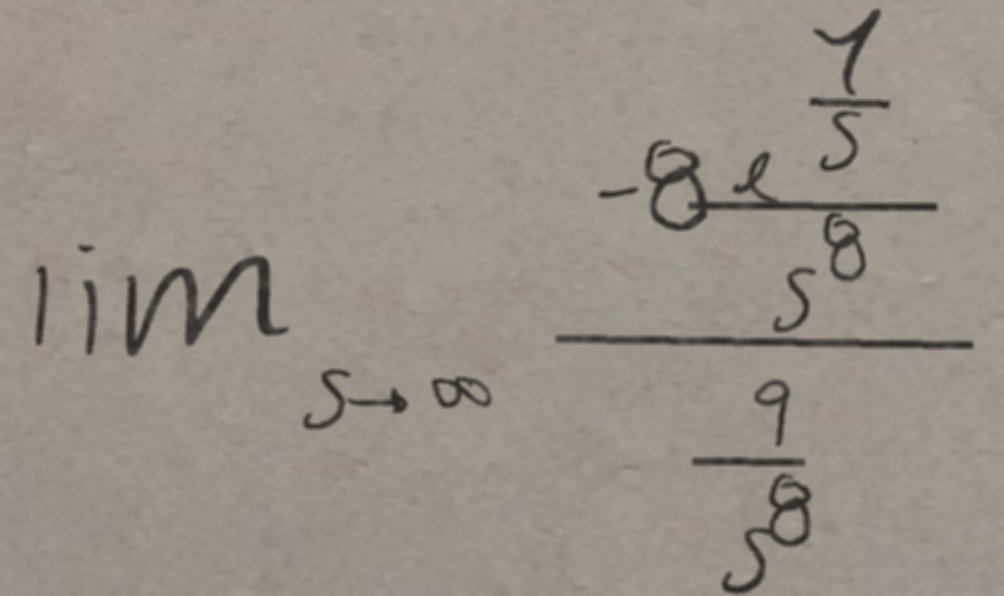 \lim_{s \to \infty} \frac{\frac{-8 e^{\frac{1}{s}}}{s^8}}{\frac{9}{s^8}}